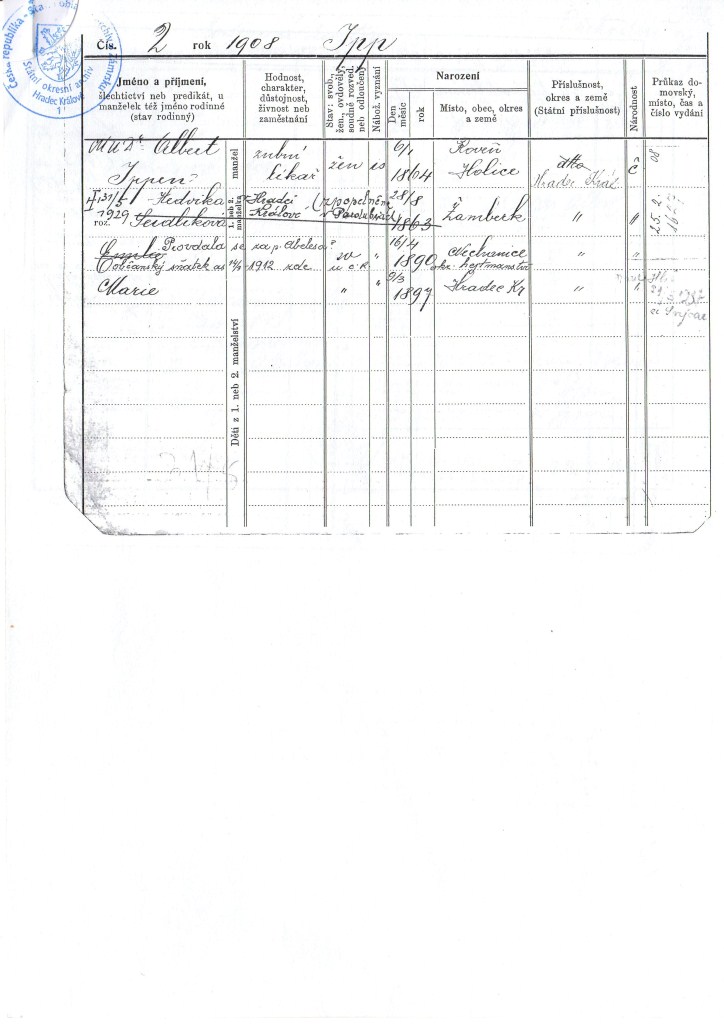 Česká republika
Státní okresní archiv
Hradec Králové
1
Čís. 2 rok 1908 Ipp
Jméno a příjmení,
šlechtictví neb predikát, u
manželek též jméno rodinné
(stav rodinný)
Hodnost,
charakter,
důstojnost,
živnost neb
zaměstnání
Stav: svob.,
žen., ovdovělý,
soudně rozved.
neb odloučený
Nábož. vyznání
Narození
Den
měsíc
rok
Místo, obec, okres
a země
Příslušnost,
okres a země
(Státní příslušnost)
Národnost
Průkaz do-
movský,
místo, čas a
číslo vydání
MUDr Albert
Ippen
manžel
zubní
lékař
žen
is
6/1
1864
Roveň
Holice
Hradec Král.
č
08
31/5 Hedvika
1929
roz. Seidlíková
1. neb 2.
manželka
Hradci
Králové
(zpopelněna
v Pardubicích)
28/8
1863
Žamberk
"
"
25.2.
Provdala se za p. Abelesa
Občanský sňatek as 14/9 1912 zde
sv
u c. k.
"
16/4
1890
Nechanice
okr. hejtmanství
"
"
Marie
"
"
9/3
1897
Hradec Kr
"
"
Děti z 1. neb 2. manželství